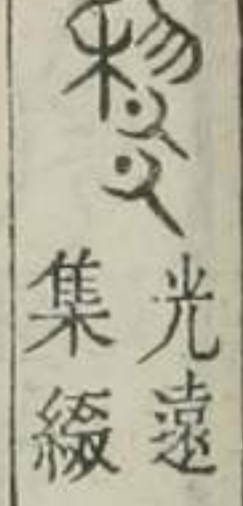 光遠
集綴